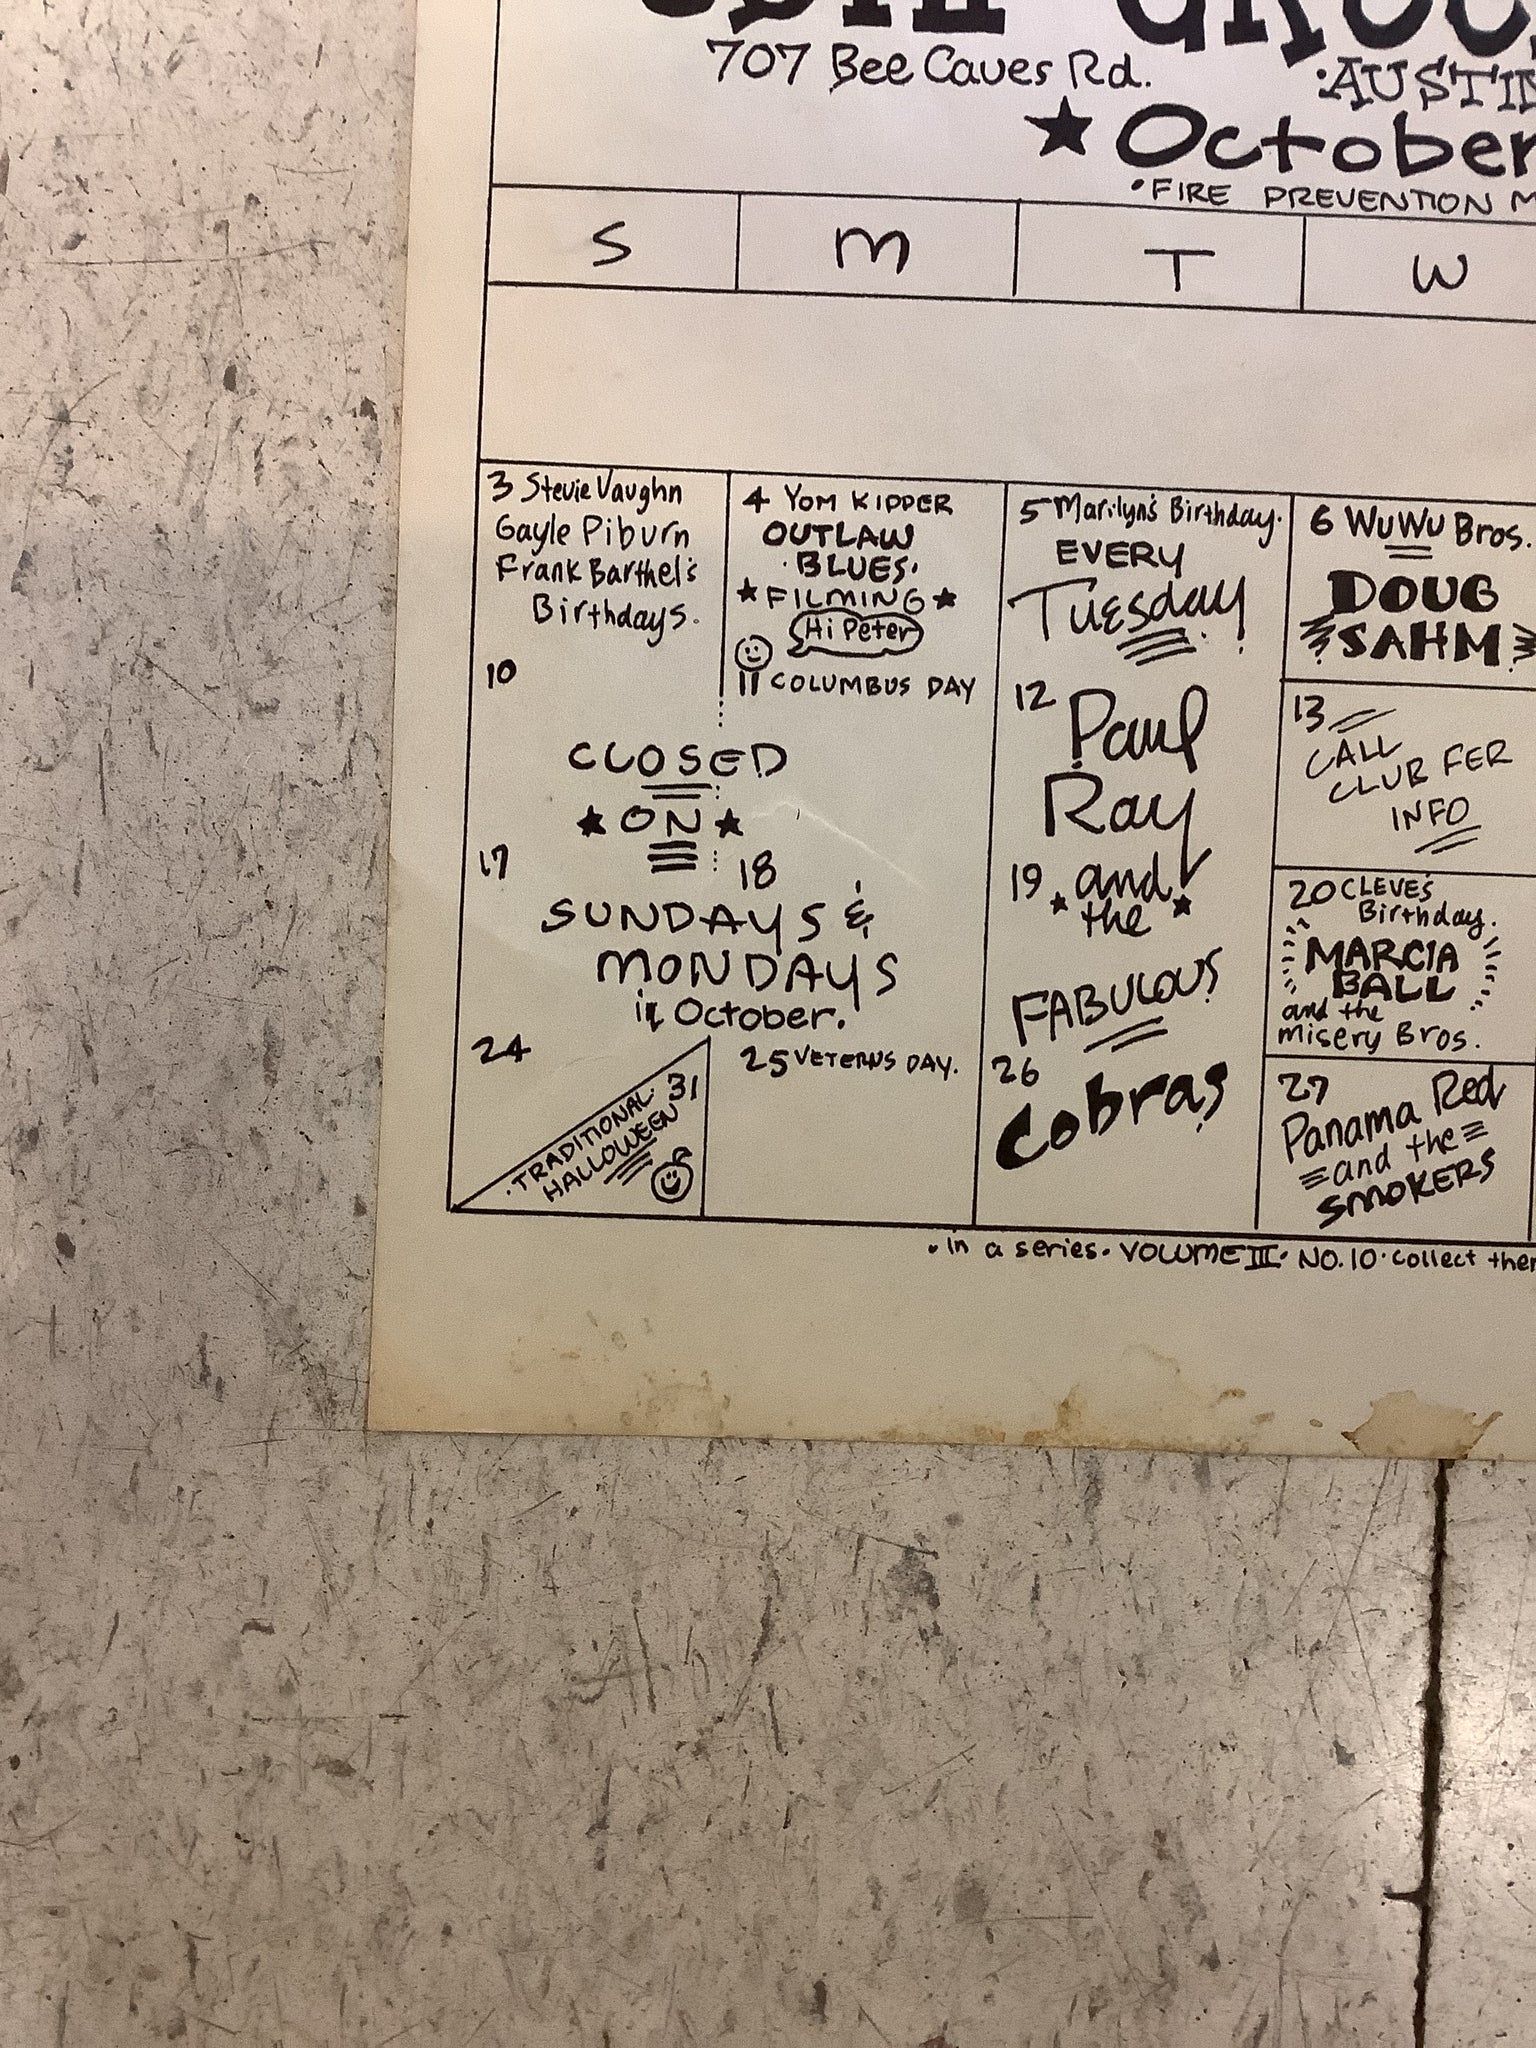 707 Bee Caves Rd.
·AUSTIN
★ October
·FIRE PREVENTION M
S M T W
3 Stevie Vaughn
Gayle Piburn
Frank Barthel's
Birthdays.
4 YOM KIPPER
OUTLAW
·BLUES·
★FILMING★
Hi Peter
5 Marilyn's Birthday.
EVERY
Tuesday!
6 WUWU Bros.
DOUG
SAHM
10
11 COLUMBUS DAY
CLOSED
★ ON ★
17
18
SUNDAYS &
MONDAYS
in October.
12 Paul
Ray
19 ★ and ★
the
FABULOUS
26 Cobras
13
CALL
CLUB FER
INFO
20 CLEVE'S
Birthday.
MARCIA
BALL
and the
Misery Bros.
24
31
·TRADITIONAL·
HALLOWEEN
25 VETERNS DAY.
27
Panama Red
and the
SMOKERS
·in a series· VOLUME III· NO.10·collect them